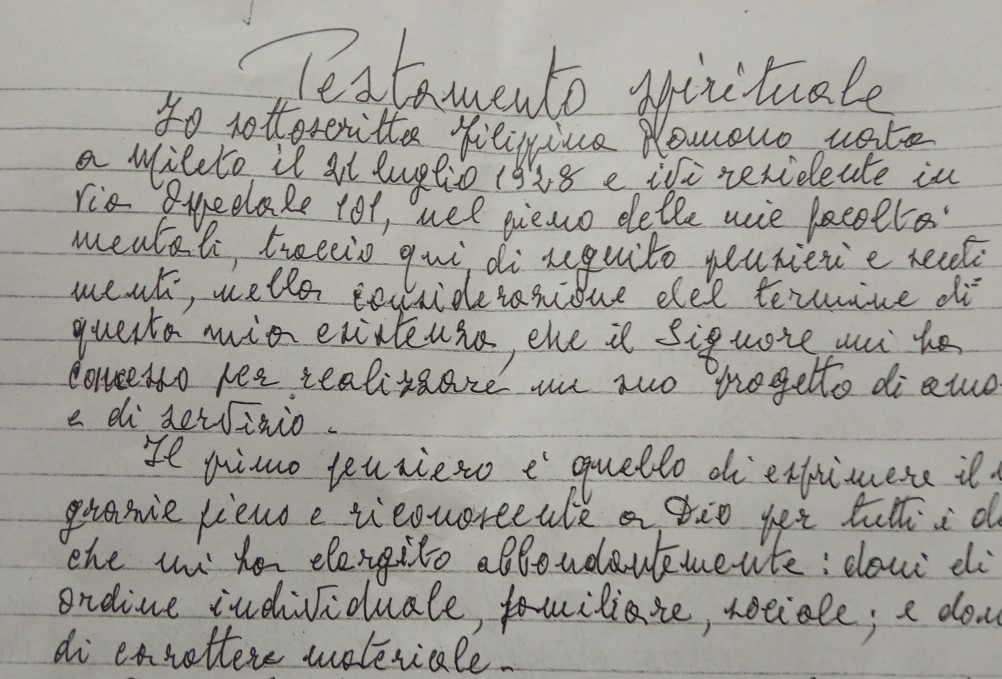 Testamento spirituale
Io sottoscritta Filippina Romano nata
a Mileto il 21 luglio 1928 e ivi residente in
via Ospedale 101, nel pieno delle mie facoltà
mentali, traccio qui, di seguito pensieri e senti
menti, nella considerazione del termine di
questa mia esistenza, che il Signore mi ha
concesso per realizzare un suo progetto di amo
e di servizio.
Il primo pensiero è quello di esprimere il
grazie pieno e riconoscente a Dio per tutti i d
che mi ha elargito abbondantemente: doni di
ordine individuale, familiare, sociale; e don
di carattere materiale.